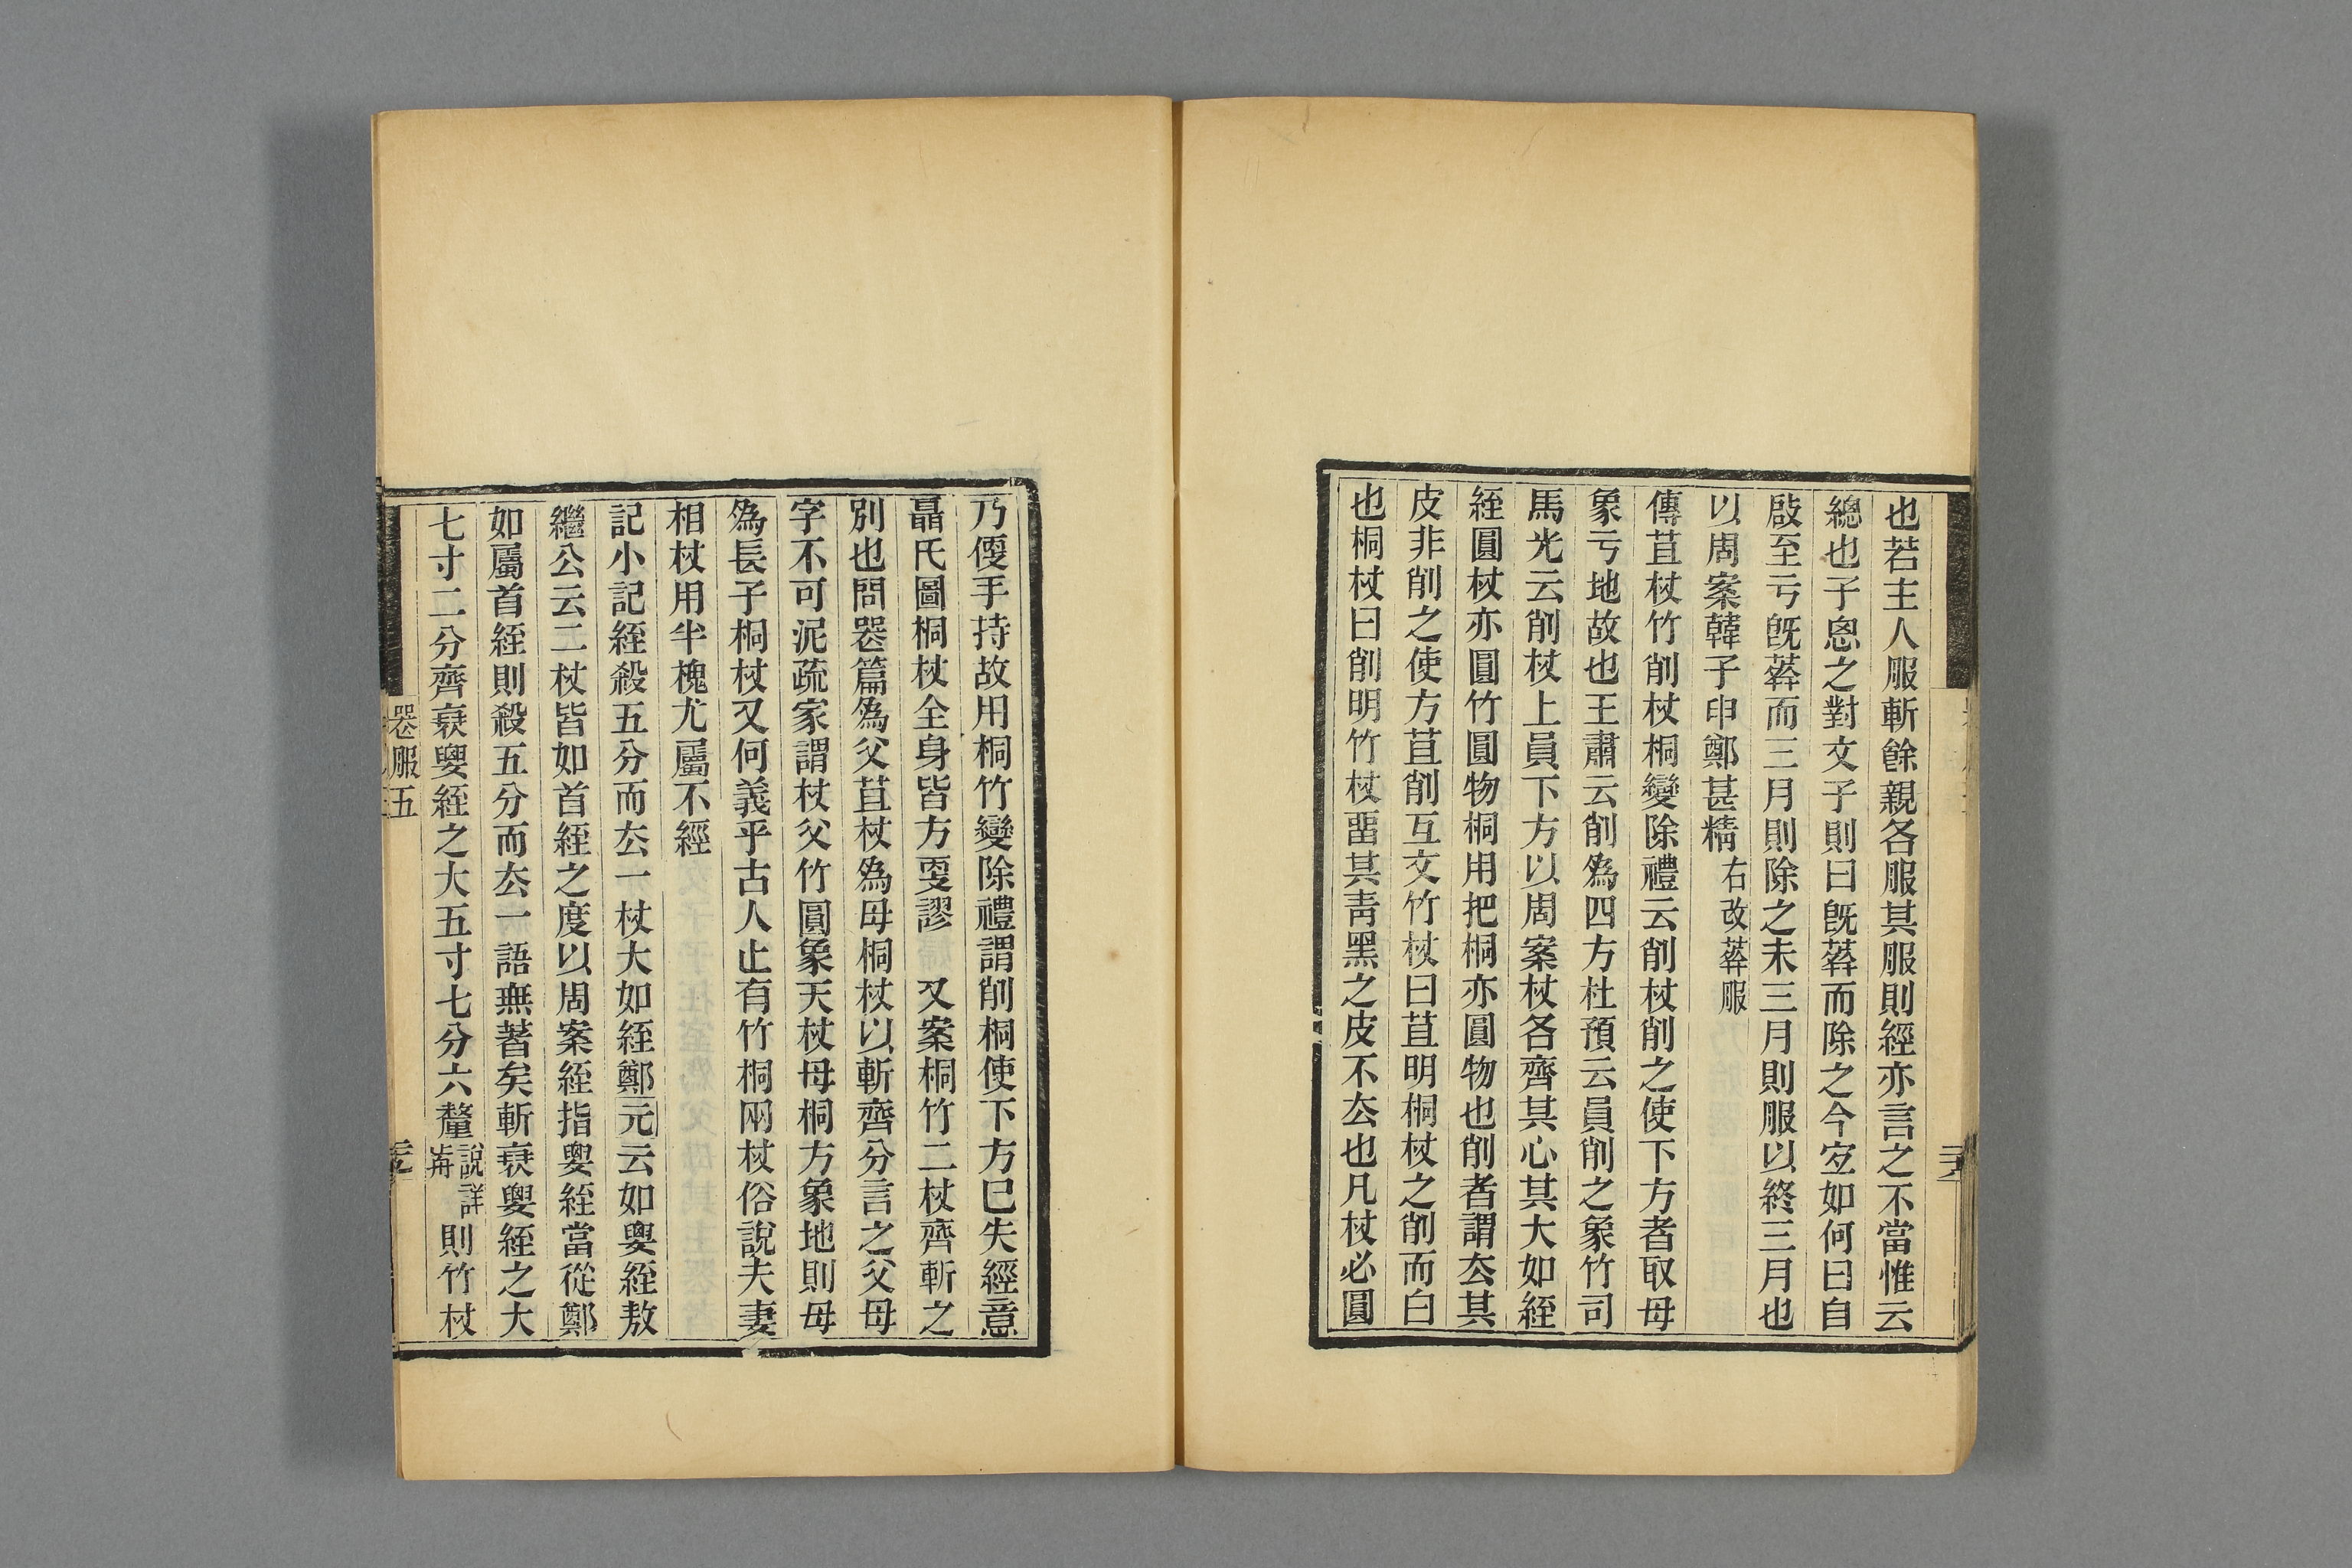 也若主人服斬餘親各服其服則經亦言之不當惟云
總也子恖之對文子則曰既葬而除之今宐如何曰自
啟至亏既葬而三月則除之未三月則服以終三月也
以周案韓子申鄭甚精右改葬服
傳苴杖竹削杖桐變除禮云削杖削之使下方者取母
象亏地故也王肅云削爲四方杜預云員削之象竹司
馬光云削杖上員下方以周案杖各齊其心其大如絰
絰圓杖亦圓竹圓物桐用把桐亦圓物也削者謂厺其
皮非削之使方苴削互文竹杖曰苴明桐杖之削而白
也桐杖曰削明竹杖畱其靑黑之皮不厺也凡杖必圓
乃偄手持故用桐竹變除禮謂削桐使下方巳失經意
聶氏圖桐杖全身皆方叓謬 又案桐竹二杖齊斬之
別也問喪篇爲父苴杖爲母桐杖以斬齊分言之父母
字不可泥疏家謂杖父竹圓象天杖母桐方象地則母
爲長子桐杖又何義乎古人止有竹桐兩杖俗說夫妻
相杖用半槐尤屬不經
記小記絰殺五分而厺一杖大如絰鄭元云如㚻絰敖
繼公云二杖皆如首絰之度以周案絰指㚻絰當從鄭
如屬首絰則殺五分而厺一語無著矣斬衰㚻絰之大
七寸二分齊衰㚻絰之大五寸七分六釐說詳歬則竹杖
喪服五